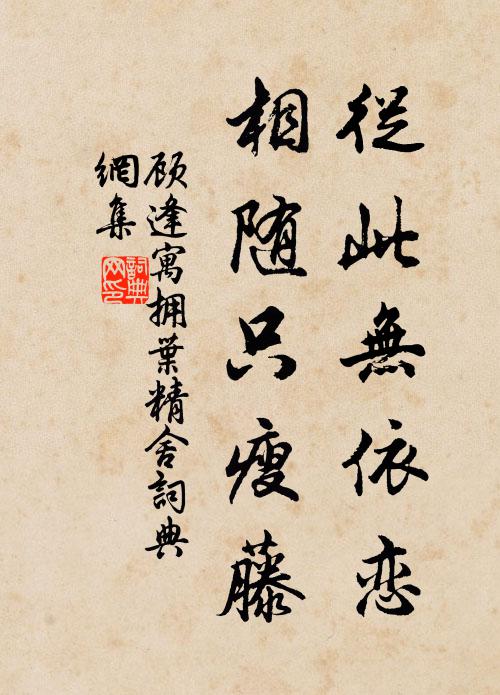 從此無依恋
相随只瘦藤
顾逢寓拥葉精舍詞典
網集
詞典網印